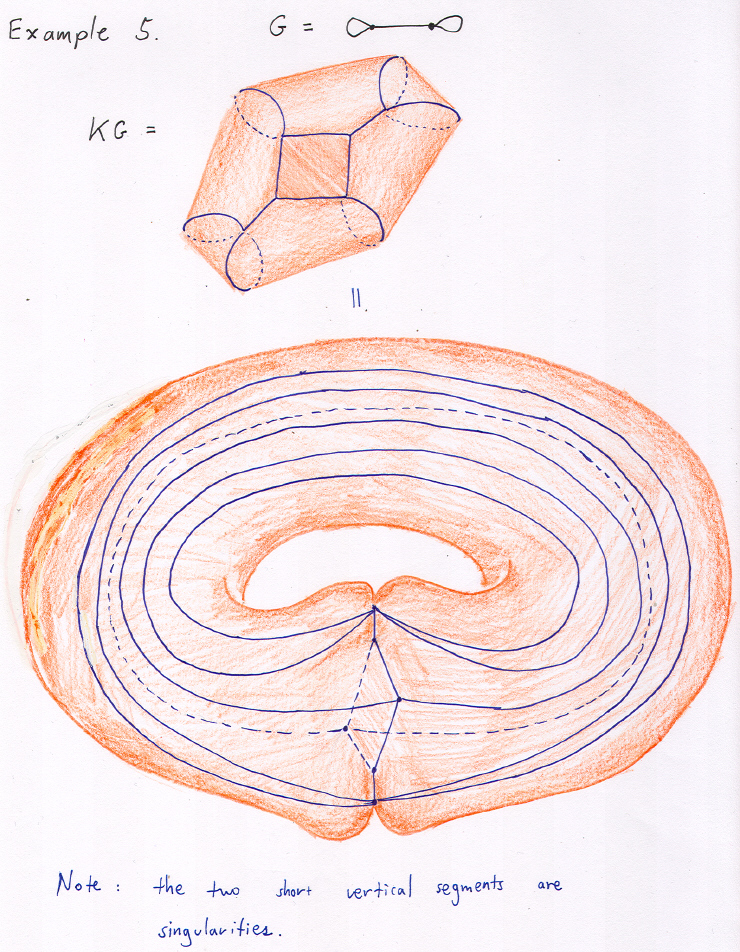 Example 5.
G =
KG =
II.
Note : the two short vertical segments are
singularities.